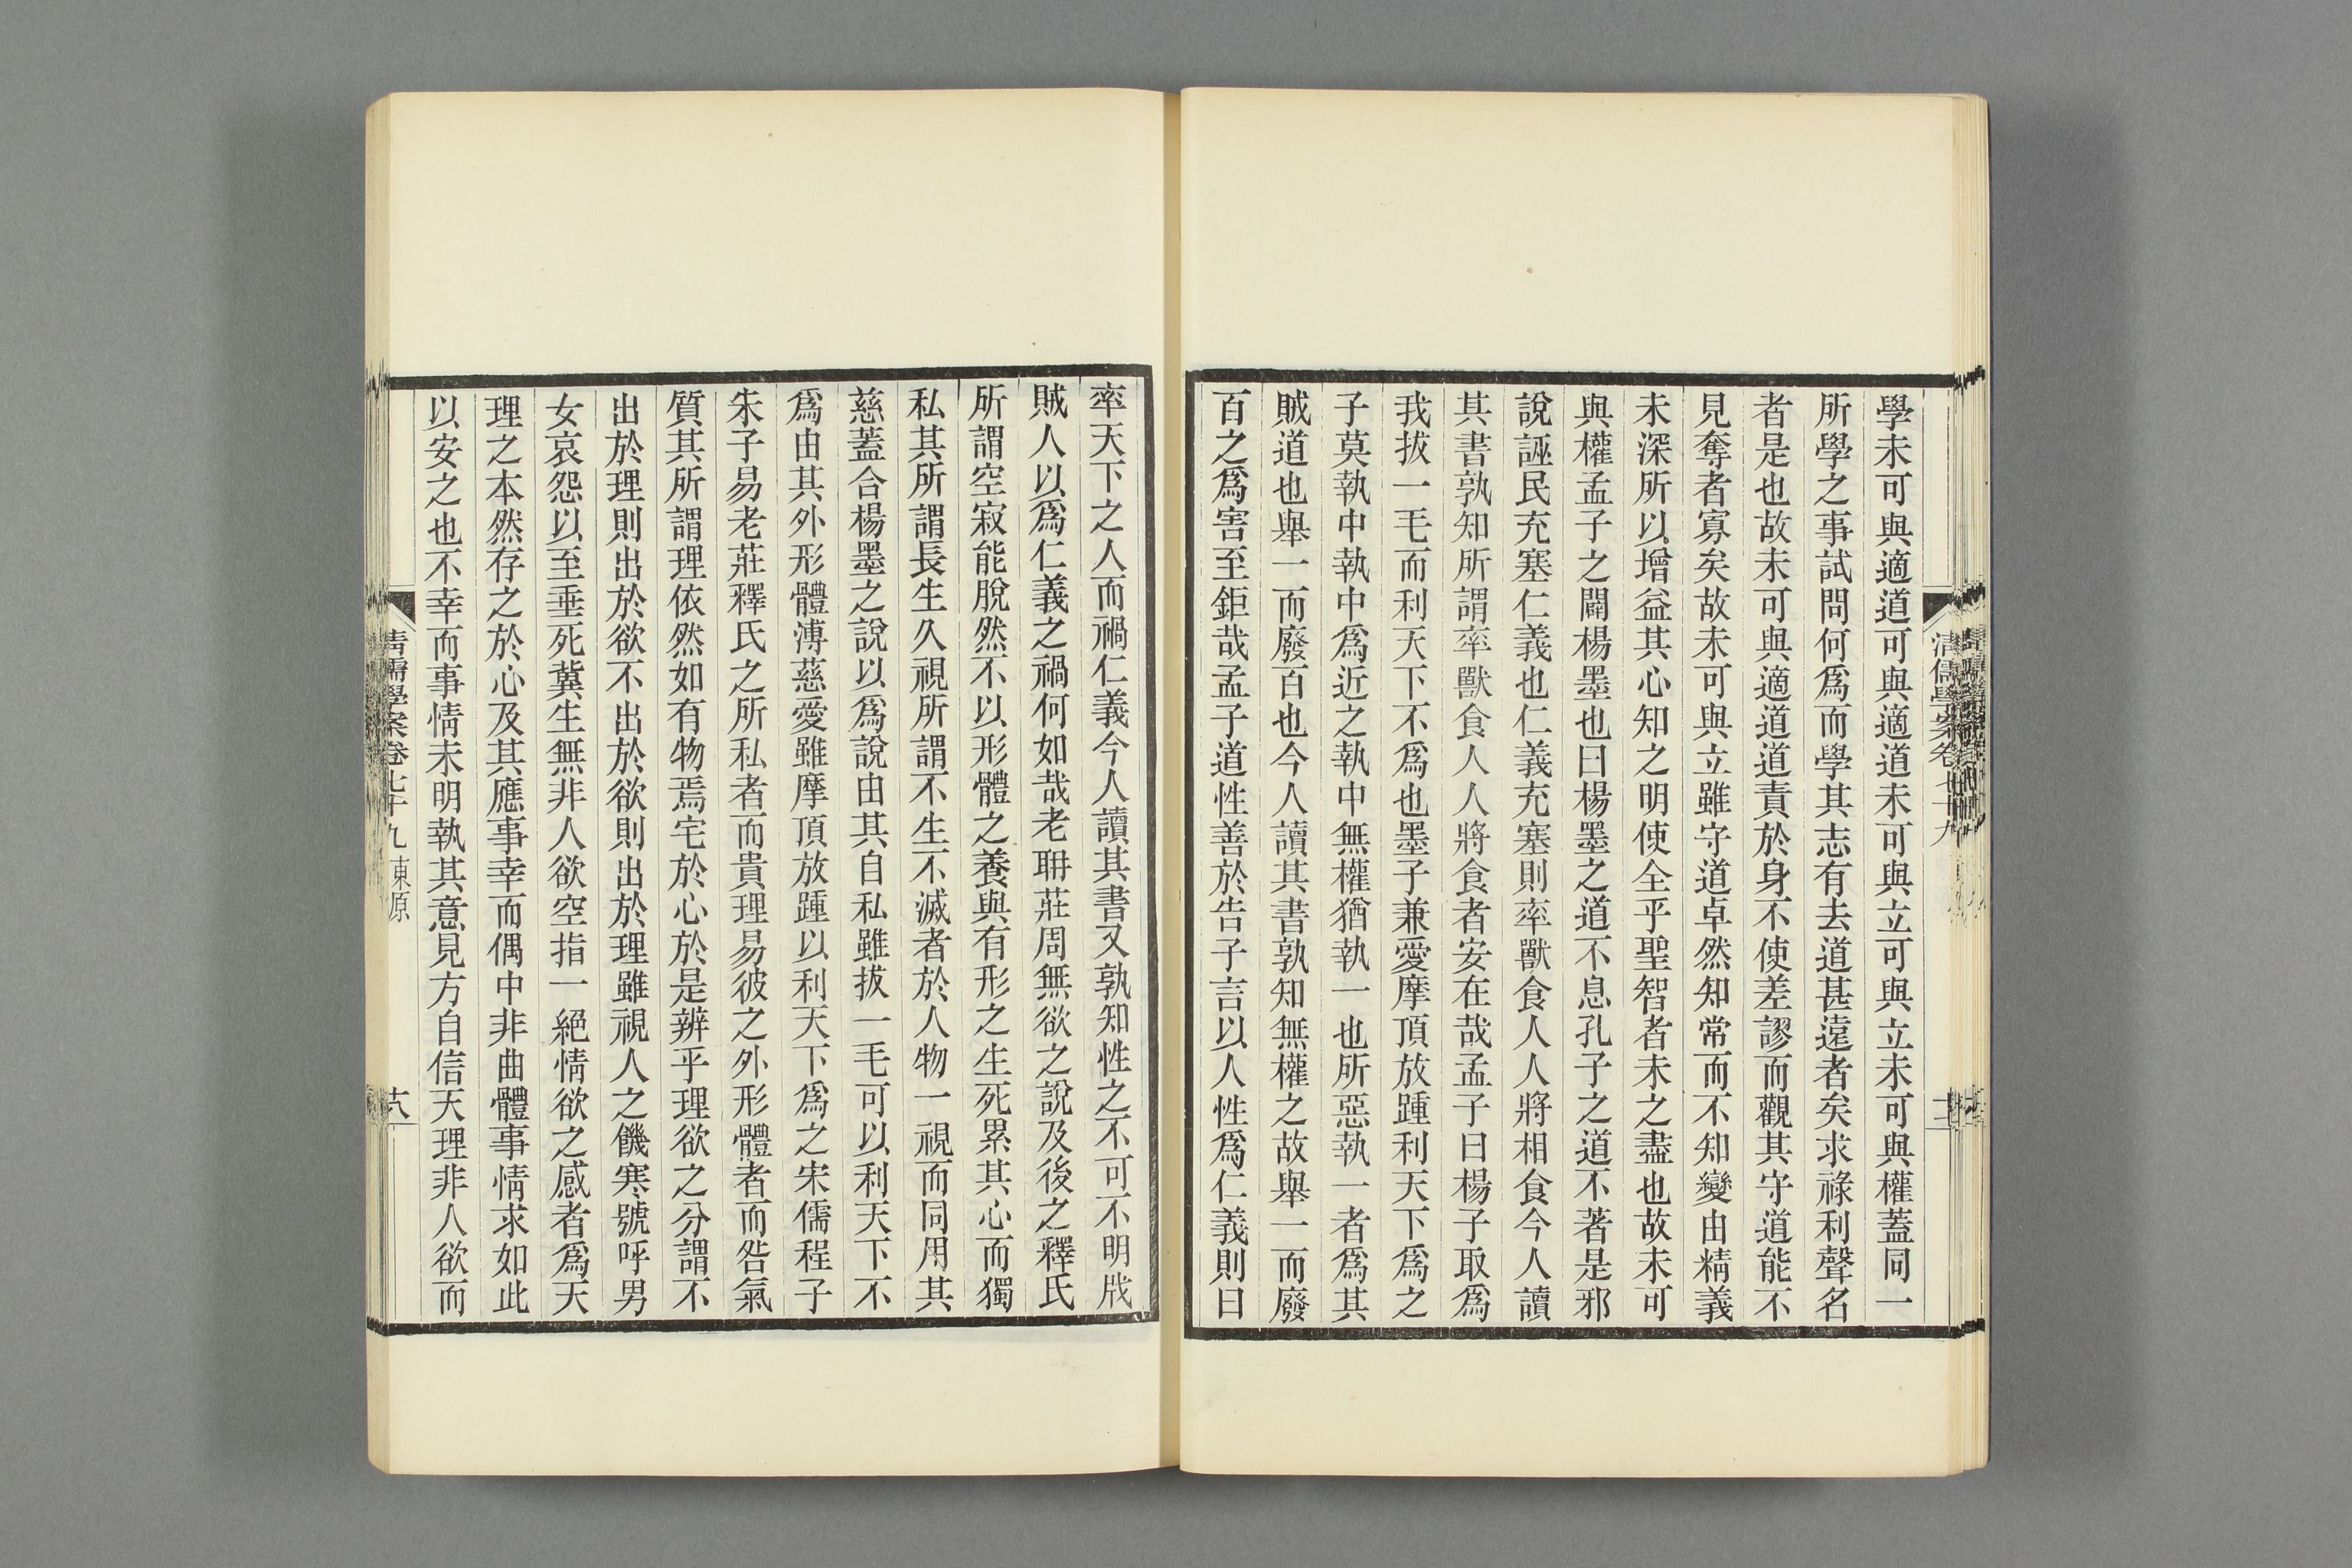 學未可與適道可與適道未可與立可與立未可與權蓋同一
所學之事試問何爲而學其志有去道甚遠者矣求祿利聲名
者是也故未可與適道道責於身不使差謬而觀其守道能不
見奪者寡矣故未可與立雖守道卓然知常而不知變由精義
未深所以增益其心知之明使全乎聖智者未之盡也故未可
與權孟子之闢楊墨也曰楊墨之道不息孔子之道不著是邪
說誣民充塞仁義也仁義充塞則率獸食人人將相食今人讀
其書孰知所謂率獸食人人將食者安在哉孟子曰楊子取爲
我拔一毛而利天下不爲也墨子兼愛摩頂放踵利天下爲之
子莫執中執中爲近之執中無權猶執一也所惡執一者爲其
賊道也舉一而廢百也今人讀其書孰知無權之故舉一而廢
百之爲害至鉅哉孟子道性善於告子言以人性爲仁義則曰
率天下之人而禍仁義今人讀其書又孰知性之不可不明戕
賊人以爲仁義之禍何如哉老聃莊周無欲之說及後之釋氏
所謂空寂能脫然不以形體之養與有形之生死累其心而獨
私其所謂長生久視所謂不生不滅者於人物一視而同用其
慈蓋合楊墨之說以爲說由其自私雖拔一毛可以利天下不
爲由其外形體溥慈愛雖摩頂放踵以利天下爲之宋儒程子
朱子易老莊釋氏之所私者而貴理易彼之外形體者而咎氣
質其所謂理依然如有物焉宅於心於是辨乎理欲之分謂不
出於理則出於欲不出於欲則出於理雖視人之饑寒號呼男
女哀怨以至垂死冀生無非人欲空指一絕情欲之感者爲天
理之本然存之於心及其應事幸而偶中非曲體事情求如此
以安之也不幸而事情未明執其意見方自信天理非人欲而
清儒學案卷七十九 東原
十八
清儒學案卷七十九